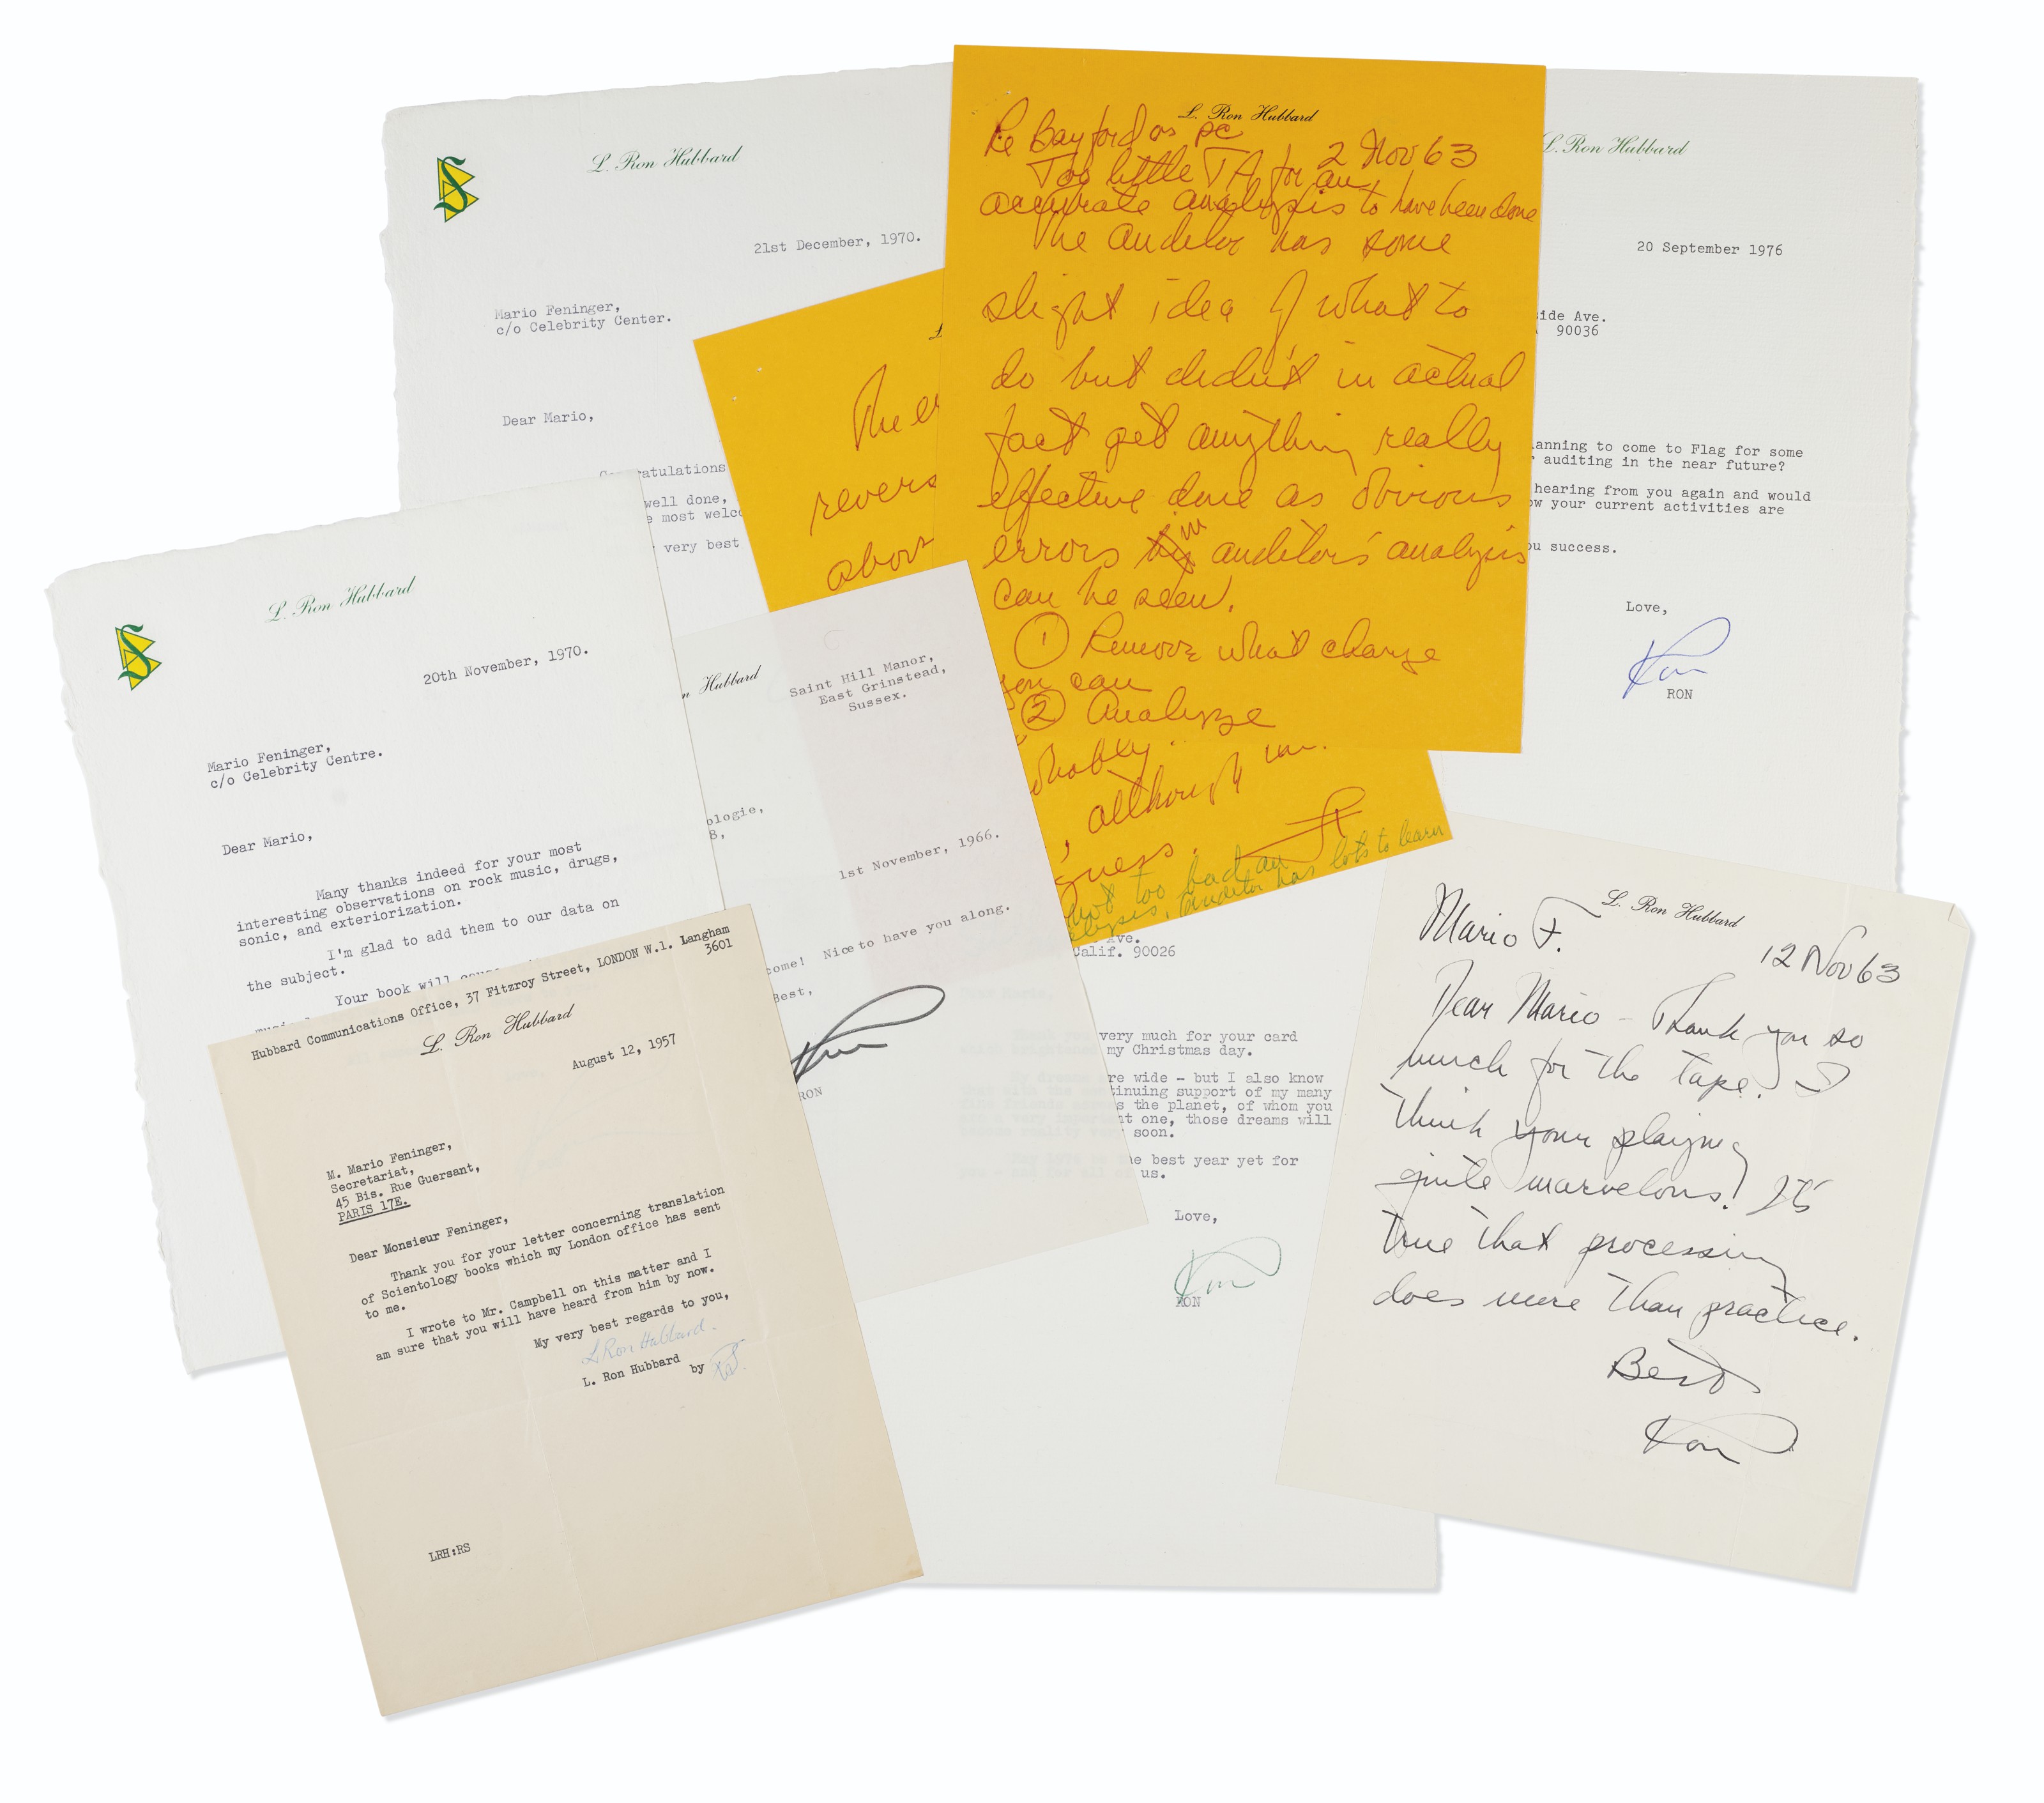 L. Ron Hubbard
21st December, 1970.
Mario Feninger,
c/o Celebrity Center.
Dear Mario,
ratulations
well done,
e most welc
very best
L. Ron Hubbard
Re Bayford as pc
2 Nov 63
Too little TA for an
accurate analysis to have been done
The auditor has some
slight idea of what to
do but didn't in actual
fact get anything really
effective done as obvious
errors in auditor's analysis
can be seen.
① Remove what charge
you can
② Analyze
The er
revers
abov
probably.
, although
guess.
not too bad an
auditor has lots to learn
L. Ron Hubbard
20 September 1976
side Ave.
90036
anning to come to Flag for some
r auditing in the near future?
hearing from you again and would
ow your current activities are
ou success.
Love,
Ron
RON
L. Ron Hubbard
20th November, 1970.
Mario Feninger,
c/o Celebrity Centre.
Dear Mario,
Many thanks indeed for your most
interesting observations on rock music, drugs,
sonic, and exteriorization.
I'm glad to add them to our data on
the subject.
Your book will
n Hubbard
Saint Hill Manor,
East Grinstead,
Sussex.
ologie,
8,
1st November, 1966.
come! Nice to have you along.
Best,
Ron
RON
Hubbard Communications Office, 37 Fitzroy Street, LONDON W.1. Langham
3601
L. Ron Hubbard
August 12, 1957
M. Mario Feninger,
Secretariat,
45 Bis. Rue Guersant,
PARIS 17E.
Dear Monsieur Feninger,
Thank you for your letter concerning translation
of Scientology books which my London office has sent
to me.
I wrote to Mr. Campbell on this matter and I
am sure that you will have heard from him by now.
My very best regards to you,
L Ron Hubbard.
L. Ron Hubbard by
LRH:RS
Ave.
Calif. 90026
very much for your card
my Christmas day.
re wide - but I also know
tinuing support of my many
s the planet, of whom you
nt one, those dreams will
soon.
he best year yet for
us.
Love,
Ron
RON
L. Ron Hubbard
Mario F.
12 Nov 63
Dear Mario - Thank you so
much for the tape. I
think your playing
quite marvelous! It's
true that processing
does more than practice.
Best
Ron